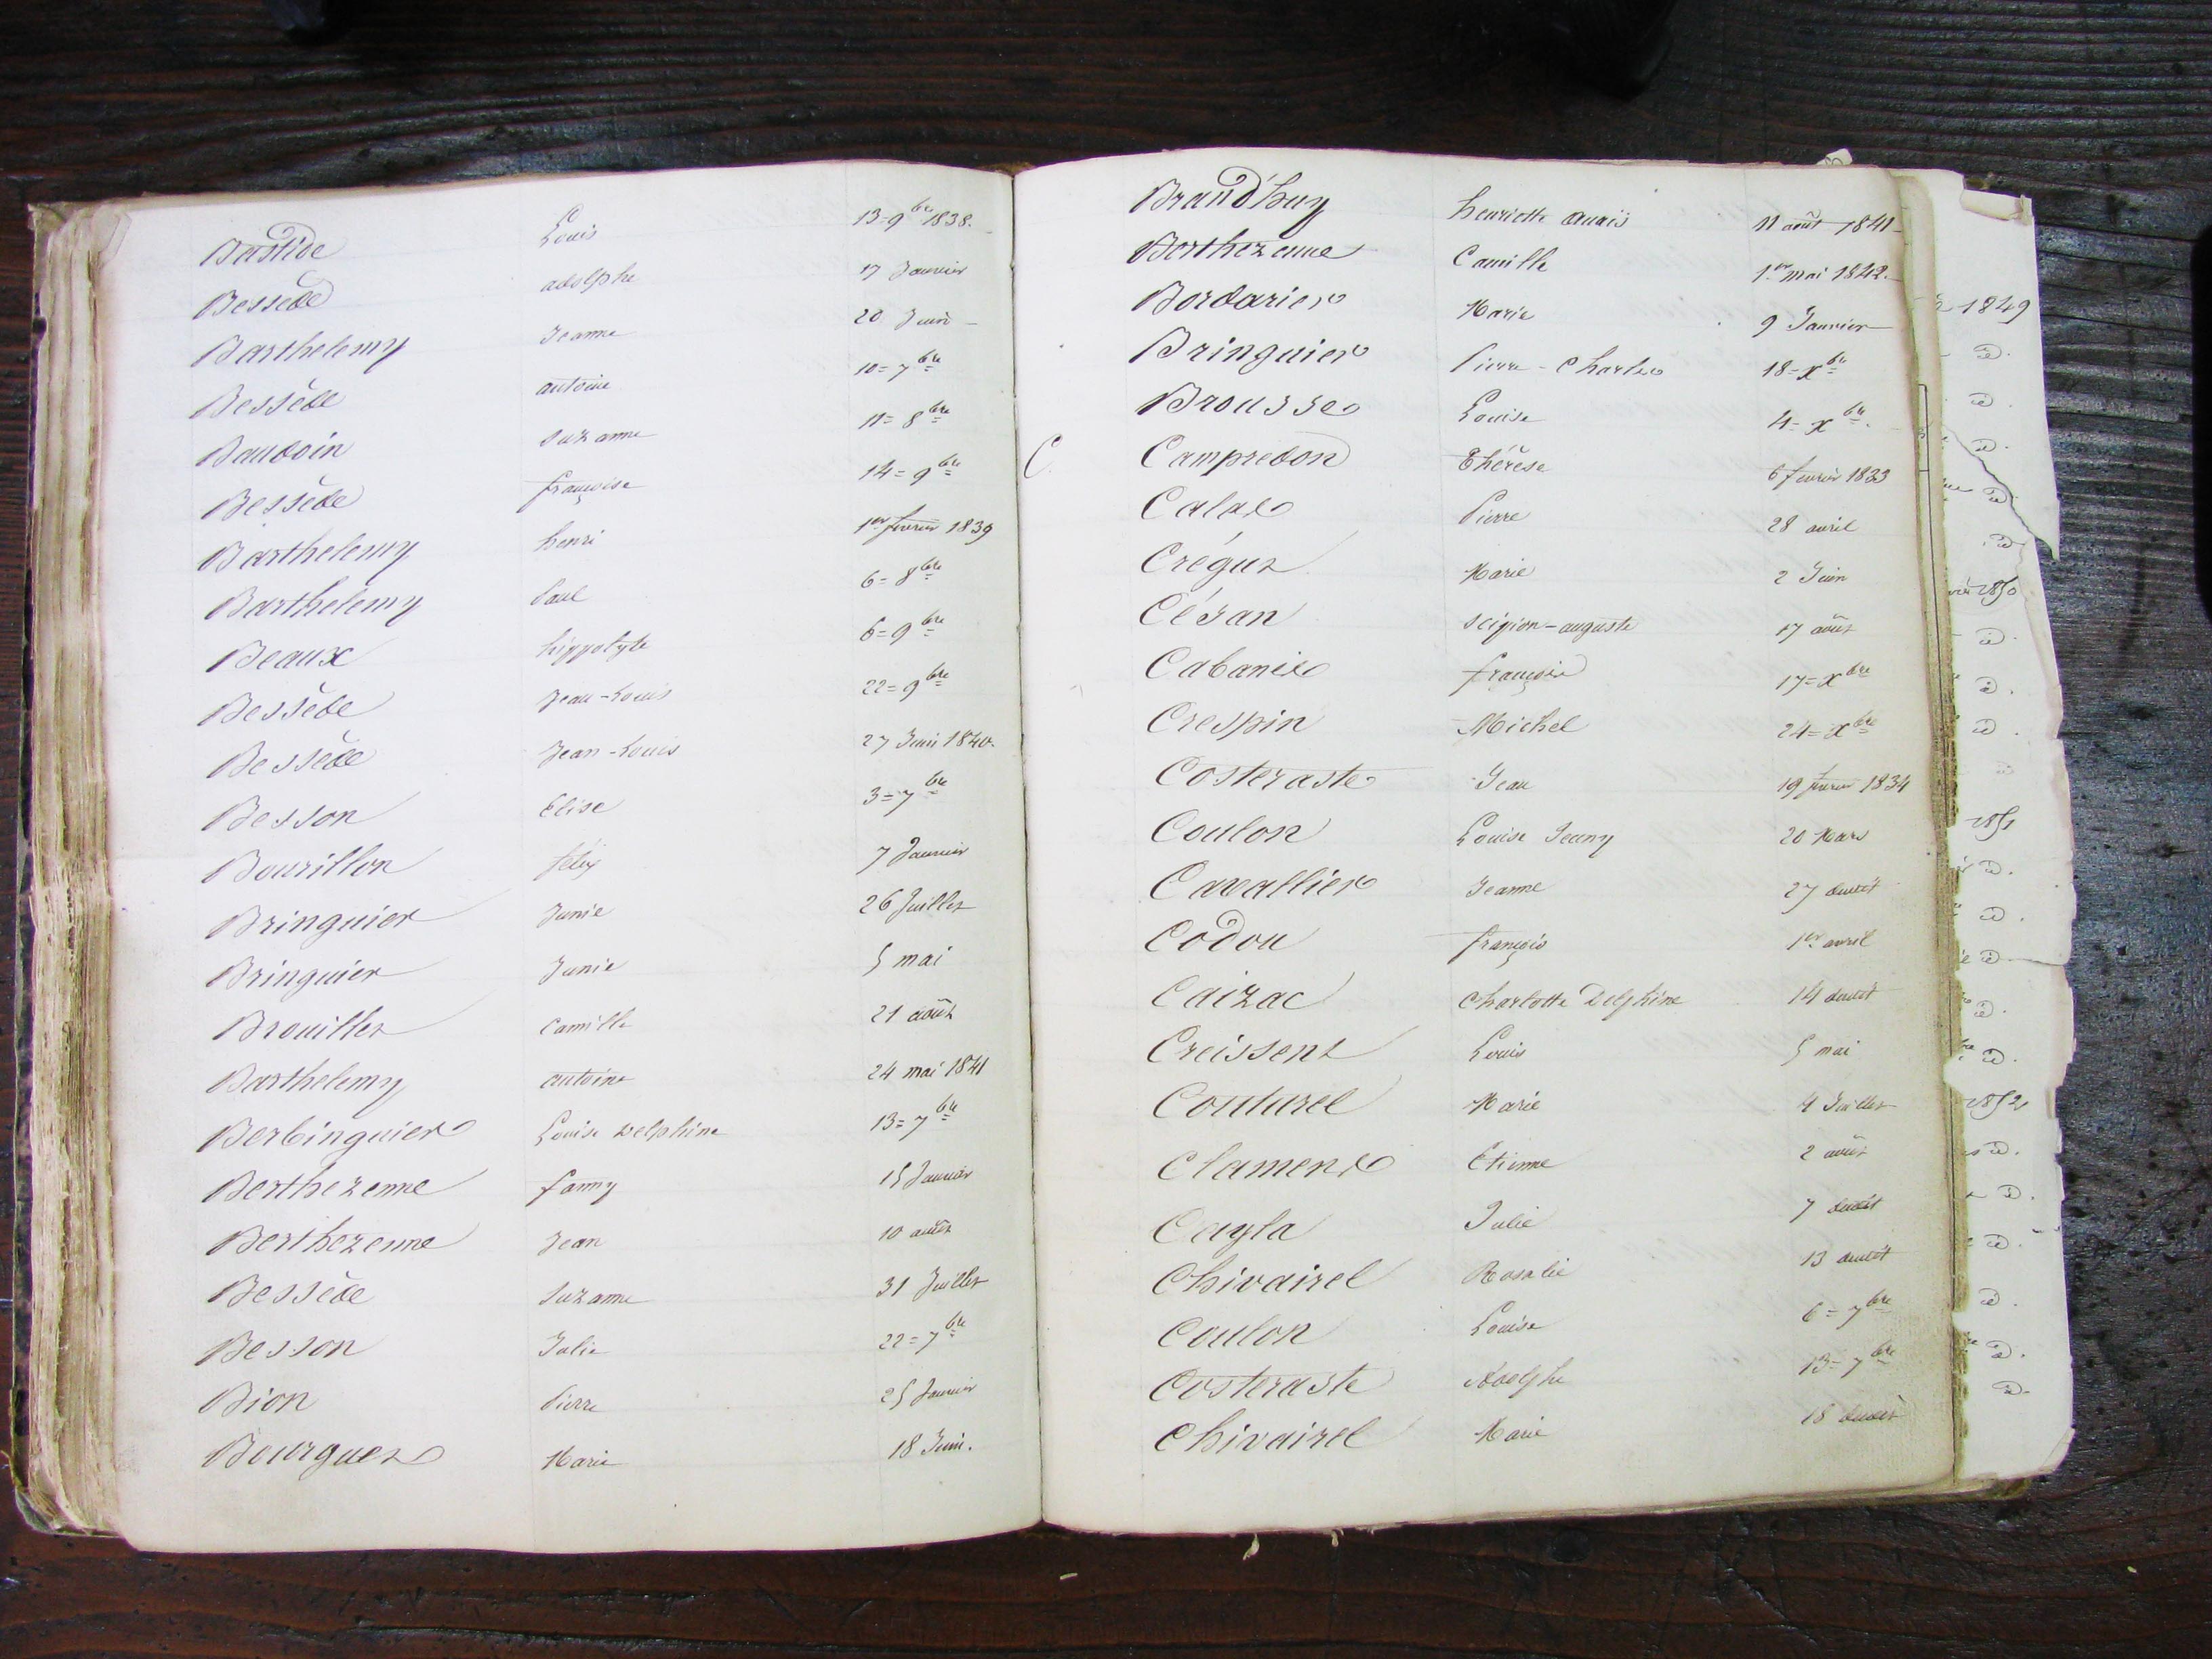 Bastide Louis 13=9bre 1838.
Bessède adolphe 17 Janvier
Barthelemy Jeanne 20 Juin
Bessède antoine 10=7bre
Baudoin Suzanne 11=8bre
Bessède françoise 14=9bre
Barthelemy henri 1er fevrier 1839
Barthelemy Paul 6=8bre
Beaux hippolyte 6=9bre
Bessède Jean-Louis 22=9bre
Bessède Jean-Louis 27 Juin 1840.
Besson Elise 3=7bre
Bourillon félix 7 Janvier
Bringuier Junie 26 Juillet
Bringuier Junie 5 mai
Brouillet Camille 21 août
Barthelemy antoine 24 mai 1841
Berbinguier Louise Delphine 13=7bre
Berthezenne fanny 15 Janvier
Berthezenne Jean 10 août
Bessède Suzanne 31 Juillet
Besson Julie 22=7bre
Bion Pierre 25 Janvier
Bourguet Marie 18 Juin.
Brand'huy henriette anaïs 11 août 1841
Berthezenne Camille 1er mai 1842.
Bordarier Marie 9 Janvier
Bringuier Pierre-Charles 18=xbre
Brousse Louise 4=xbre.
C. Campredon Thérèse 6 fevrier 1833
Calas Pierre 28 avril
Crégut Marie 2 Juin
Cézan Scipion-auguste 17 août
Cabanis françois 17=xbre
Crespin Michel 24=xbre
Costeraste Jean 19 fevrier 1834
Coulon Louise Jenny 20 Mars
Cavallier Jeanne 27 dudit
Codou françois 1er avril
Caizac Charlotte Delphine 14 dudit
Creissent Louis 5 mai
Couturel Marie 4 Juillet
Clament Etienne 2 août
Cayla Julie 7 dudit
Chivairel Rosalie 13 dudit
Coulon Louise 6=7bre
Costeraste Adolphe 13=7bre
Chivairel Marie 18 dudit
1849
id.
id.
id.
id.
id.
1850
id.
id.
id.
1851
id.
id.
id.
id.
id.
1852
id.
id.
id.
id.
id.
id.